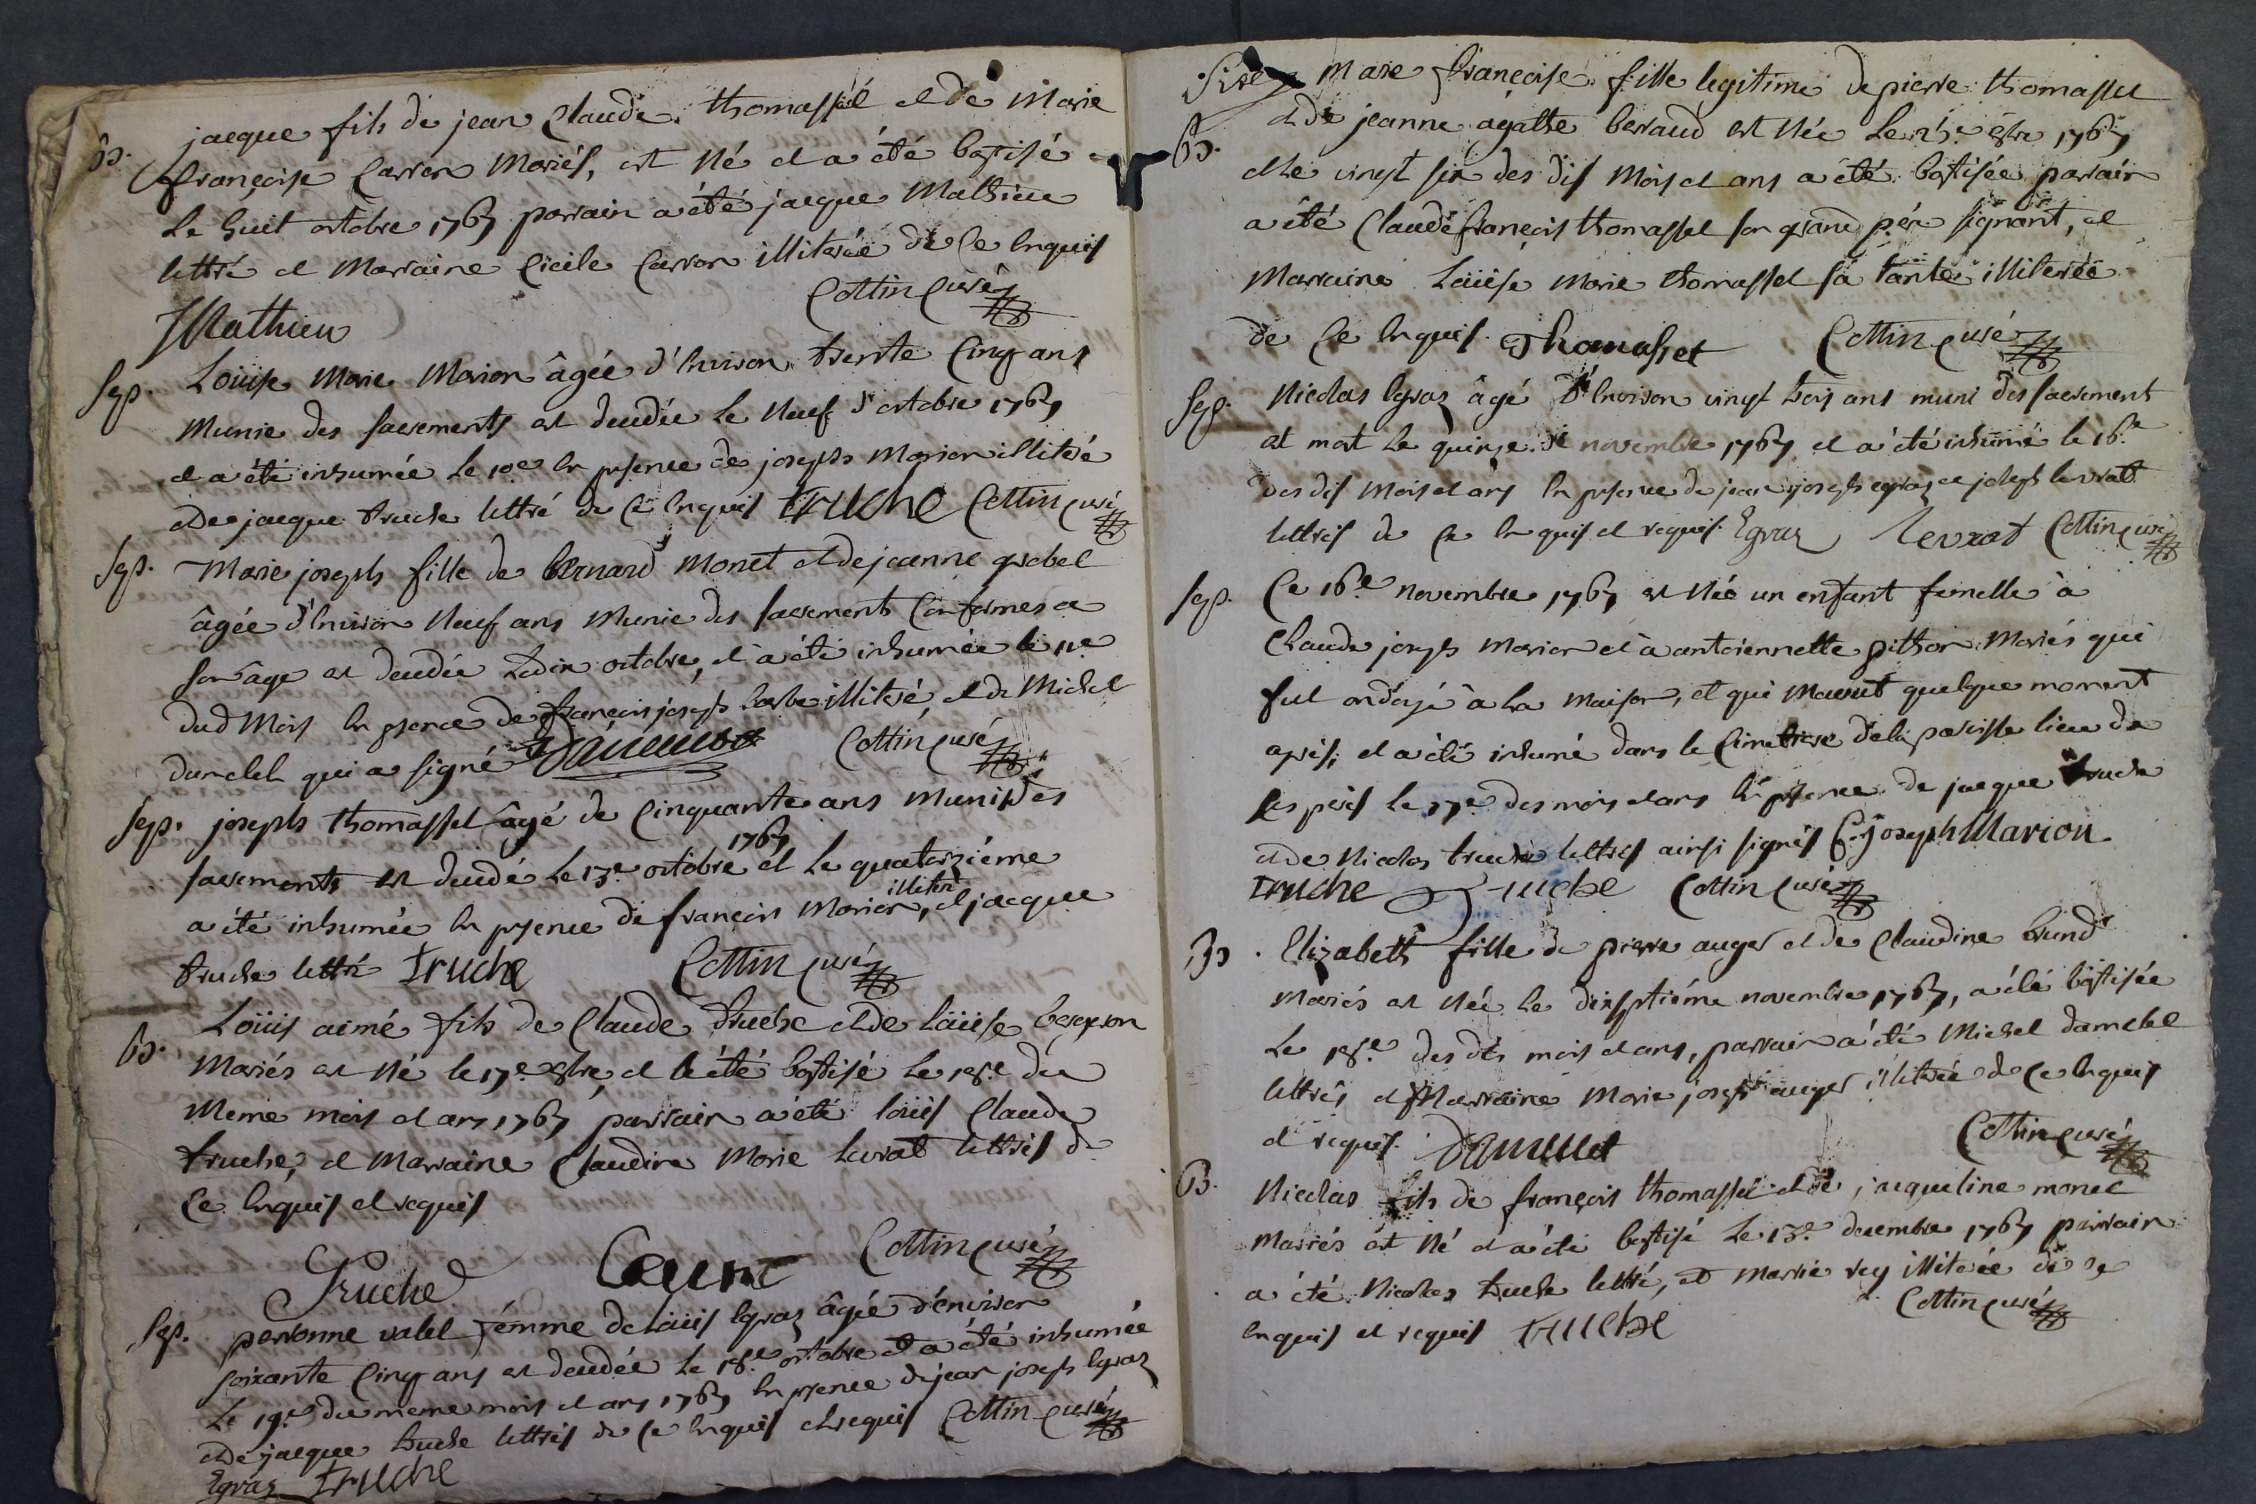 B. jacque fils de jean Claude thomasset et de Marie
françoise Carron Mariés, est né et a été baptisé
Le huit octobre 1767 parrain a été jacque Mathieu
lettré et Marraine Cicile Carron illiterée de ce Enquis
JMathieu Cottin Curé
Sep. Loüise Marie Marion âgée d'Environ trente Cinq ans
Munie des sacrements est decedée Le Neuf octobre 1767
et a été inhumée Le 10e En presence de joseph Marion illiteré
et de jacque truche lettré de ce Enquis truche Cottin Curé
Sep. Marie joseph fille de Bernard Monet et de jeanne grebel
âgée d'Environ Neuf ans Munie des sacrements Conformes a
son âge est decedée Le dix octobre, et a été inhumée le 11e
dud Mois En psence de françois joseph barbe illiteré, et de Michel
qui a signé Cottin Curé
Sep. joseph thomasset âgé de Cinquante ans Muni des
sacrements est decedé Le 13e octobre 1767 et Le quatorziéme
a été inhumée En psence de françois Marion illiteré, et jacque
truche lettré truche Cottin Curé
B. Loüis aimé fils de Claude truche et de Loüise
Mariés est né le 17e 8bre, et a été baptisé Le 18e du
Meme mois et ans 1767 parrain a été loüis Claude
truche, et Marraine Claudine Marie Levrat lettrés de
Ce Enquis et requis
Truche Cottin Curé
Sep. perronne valet femme de Loüis Egraz âgée d'environ
soixante Cinq ans est decedée Le 18e octobre et a été inhumée
Le 19e du meme mois et ans 1767 En psence de jean joseph Egraz
et de jacque truche lettrés de ce Enquis et requis Cottin Curé
Egraz truche
Marie françoise fille legitime de pierre thomasset
B. et de jeanne agathe beraud est Née Le 25e 8bre 1767
et Le vingt six des dis Mois et ans a été baptisée parrain
a été Claude françois thomasset son grand pére signant, et
Marraine Loüise Marie thomasset sa tante illiterée
de Ce Enquis Thomasset Cottin Curé
Sep. Nicolas Egraz âgé d'Environ vingt trois ans muni des sacrement
est mort Le quinze de novembre 1767 et a été inhumé le 16e
des dis Mois et ans En psence de jean joseph egraz et joseph levrat
lettrés de Ce Enquis et requis Egraz levrat Cottin Curé
Sep. Ce 16e novembre 1767 est Née un enfant femelle à
Claude joseph Marion et à antoiennette pithon Mariés qui
fut ondoyé à La Maison, et qui Mourut quelque moment
aprés; et a été inhumé dans le Cimetiere de la paroisse lieu de
ses péres Le 17e des mois et ans En psence de jacque truche
et de Nicolas truche lettrés ainsi signés C joseph Marion
truche truche Cottin Curé
B. Elizabeth fille de pierre auger et de Claudine brund
Mariés est Née Le dixseptiéme novembre 1767, a été baptisée
Le 18e des dis mois et ans, parrain a été Michel
lettrés et Marraine Marie joseph auger illiterée de Ce Enquis
et requis Cottin Curé
B. Nicolas fils de françois thomasset et de jacqueline monet
Mariés est Né et a été baptisé Le 13e decembre 1767 parrain
a été Nicolas truche lettré, et Marrie rey illiterée de Ce
Enquis et requis truche Cottin Curé